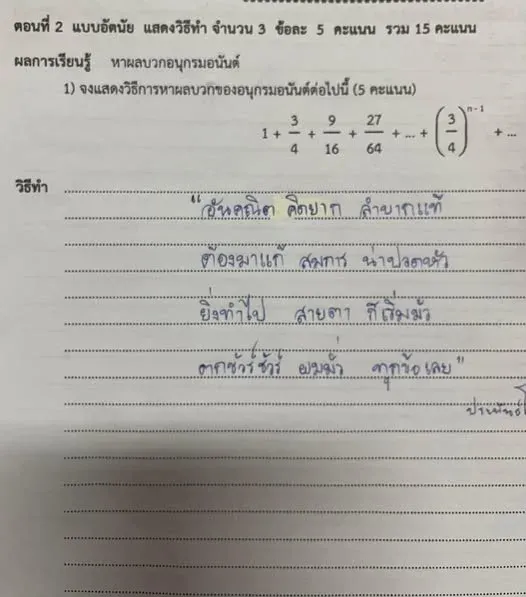 ตอนที่ 2 แบบอัตนัย แสดงวิธีทำ จำนวน 3 ข้อละ 5 คะแนน รวม 15 คะแนน
ผลการเรียนรู้ หาผลบวกอนุกรมอนันต์
1) จงแสดงวิธีการหาผลบวกของอนุกรมอนันต์ต่อไปนี้ (5 คะแนน)
1 + 3/4 + 9/16 + 27/64 + ... + (3/4)^(n-1) + ...
วิธีทำ
"อันคณิต คิดยาก ลำบากแท้
ต้องมาแก้ สมการ น่าปวดหัว
ยิ่งทำไป สายตา ก็เริ่มมัว
ตกชัวร์ชัวร์ ผมมั่ว ทุกข้อเลย"